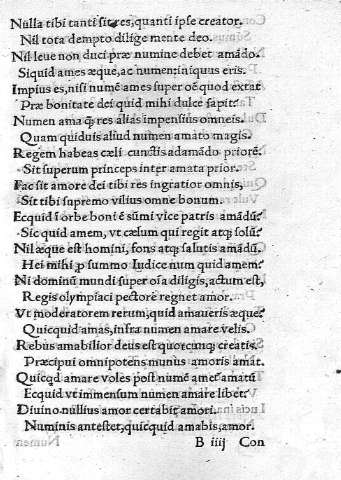 Nulla tibi tanti sit res, quanti ipse creator.
Nil tota dempto dilige mente deo.
Nil leue non duci præ numine debet amãdo.
Siquid ames æque, ac numen: iniquus eris.
Impius es, nisi numẽ ames super oẽ quod extat
Præ bonitate dei quid mihi dulce sapit?
Numen ama q̃ res alias impensius omneis.
Quam quiduis aliud numen amato magis.
Regem habeas cæli cunctis adamãdo priorẽ.
Sit superum princeps inter amata prior.
Fac sit amore dei tibi res ingratior omnis,
Sit tibi supremo vilius omne bonum.
Ecquid ĩ orbe boni ẽ sũmi vice patris amãdũ?
Sic quid amem, vt cælum qui regit atq; solũ?
Nil æque est homini, fons atq; salutis amãdũ.
Hei mihi p summo Iudice num quid amem?
Ni dominũ mundi super oĩa diligis, actum est,
Regis olympiaci pectore regnet amor.
Vt moderatorem rerum, quid amaueris æque?
Quicquid amas, infra numen amare velis.
Rebus amabilior deus est quotcunq; creatis.
Præcipui omnipotens munus amoris amat.
Quicqd amare voles post numẽ amet amatũ
Ecquid vt immensum numen amare libet?
Diuino nullius amor certabit amori.
Numinis antestet, quicquid amabis, amor.
B iiij Con